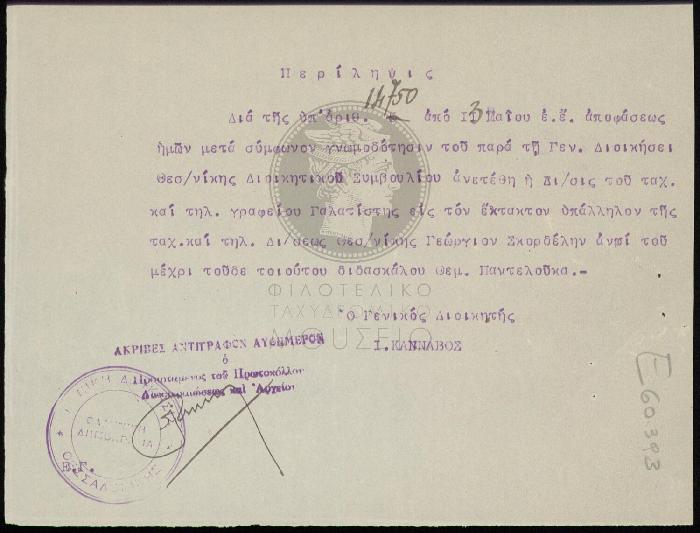 Περίληψις
14750
Διά τῆς ὑπ'ἀριθ. ἀπό 13 Μαΐου ἐ.ἔ. ἀποφάσεως
ἡμῶν μετά σύμφωνον γνωμοδότησιν τοῦ παρά τῇ Γεν. Διοικήσει
Θεσ/νίκης Διοικητικοῦ Συμβουλίου ἀνετέθη ἡ Δι/σις τοῦ ταχ.
καί τηλ. γραφείου Γαλατίστης εἰς τόν ἔκτακτον ὑπάλληλον τῆς
ταχ.καί τηλ. Δι/σεως Θεσ/νίκης Γεώργιον Σκορδέλην ἀντί τοῦ
μέχρι τοῦδε τοιούτου διδασκάλου Θεμ. Παντελούκα.-
ΦΙΛΟΤΕΛΙΚΟ
ΤΑΧΥΔΡΟΜΙΚΟ
ΜΟΥΣΕΙΟ
Ὁ Γενικός Διοικητής
Ι.ΚΑΝΝΑΒΟΣ
ΑΚΡΙΒΕΣ ΑΝΤΙΓΡΑΦΟΝ ΑΥΘΗΜΕΡΟΝ
ὁ
Προϊστάμενος τοῦ Πρωτοκόλλου
Διεκπεραιώσεως καί Ἀρχείου
ΘΕΣΣΑΛΟΝΙΚΗΣ
Ε.Γ.
E60393